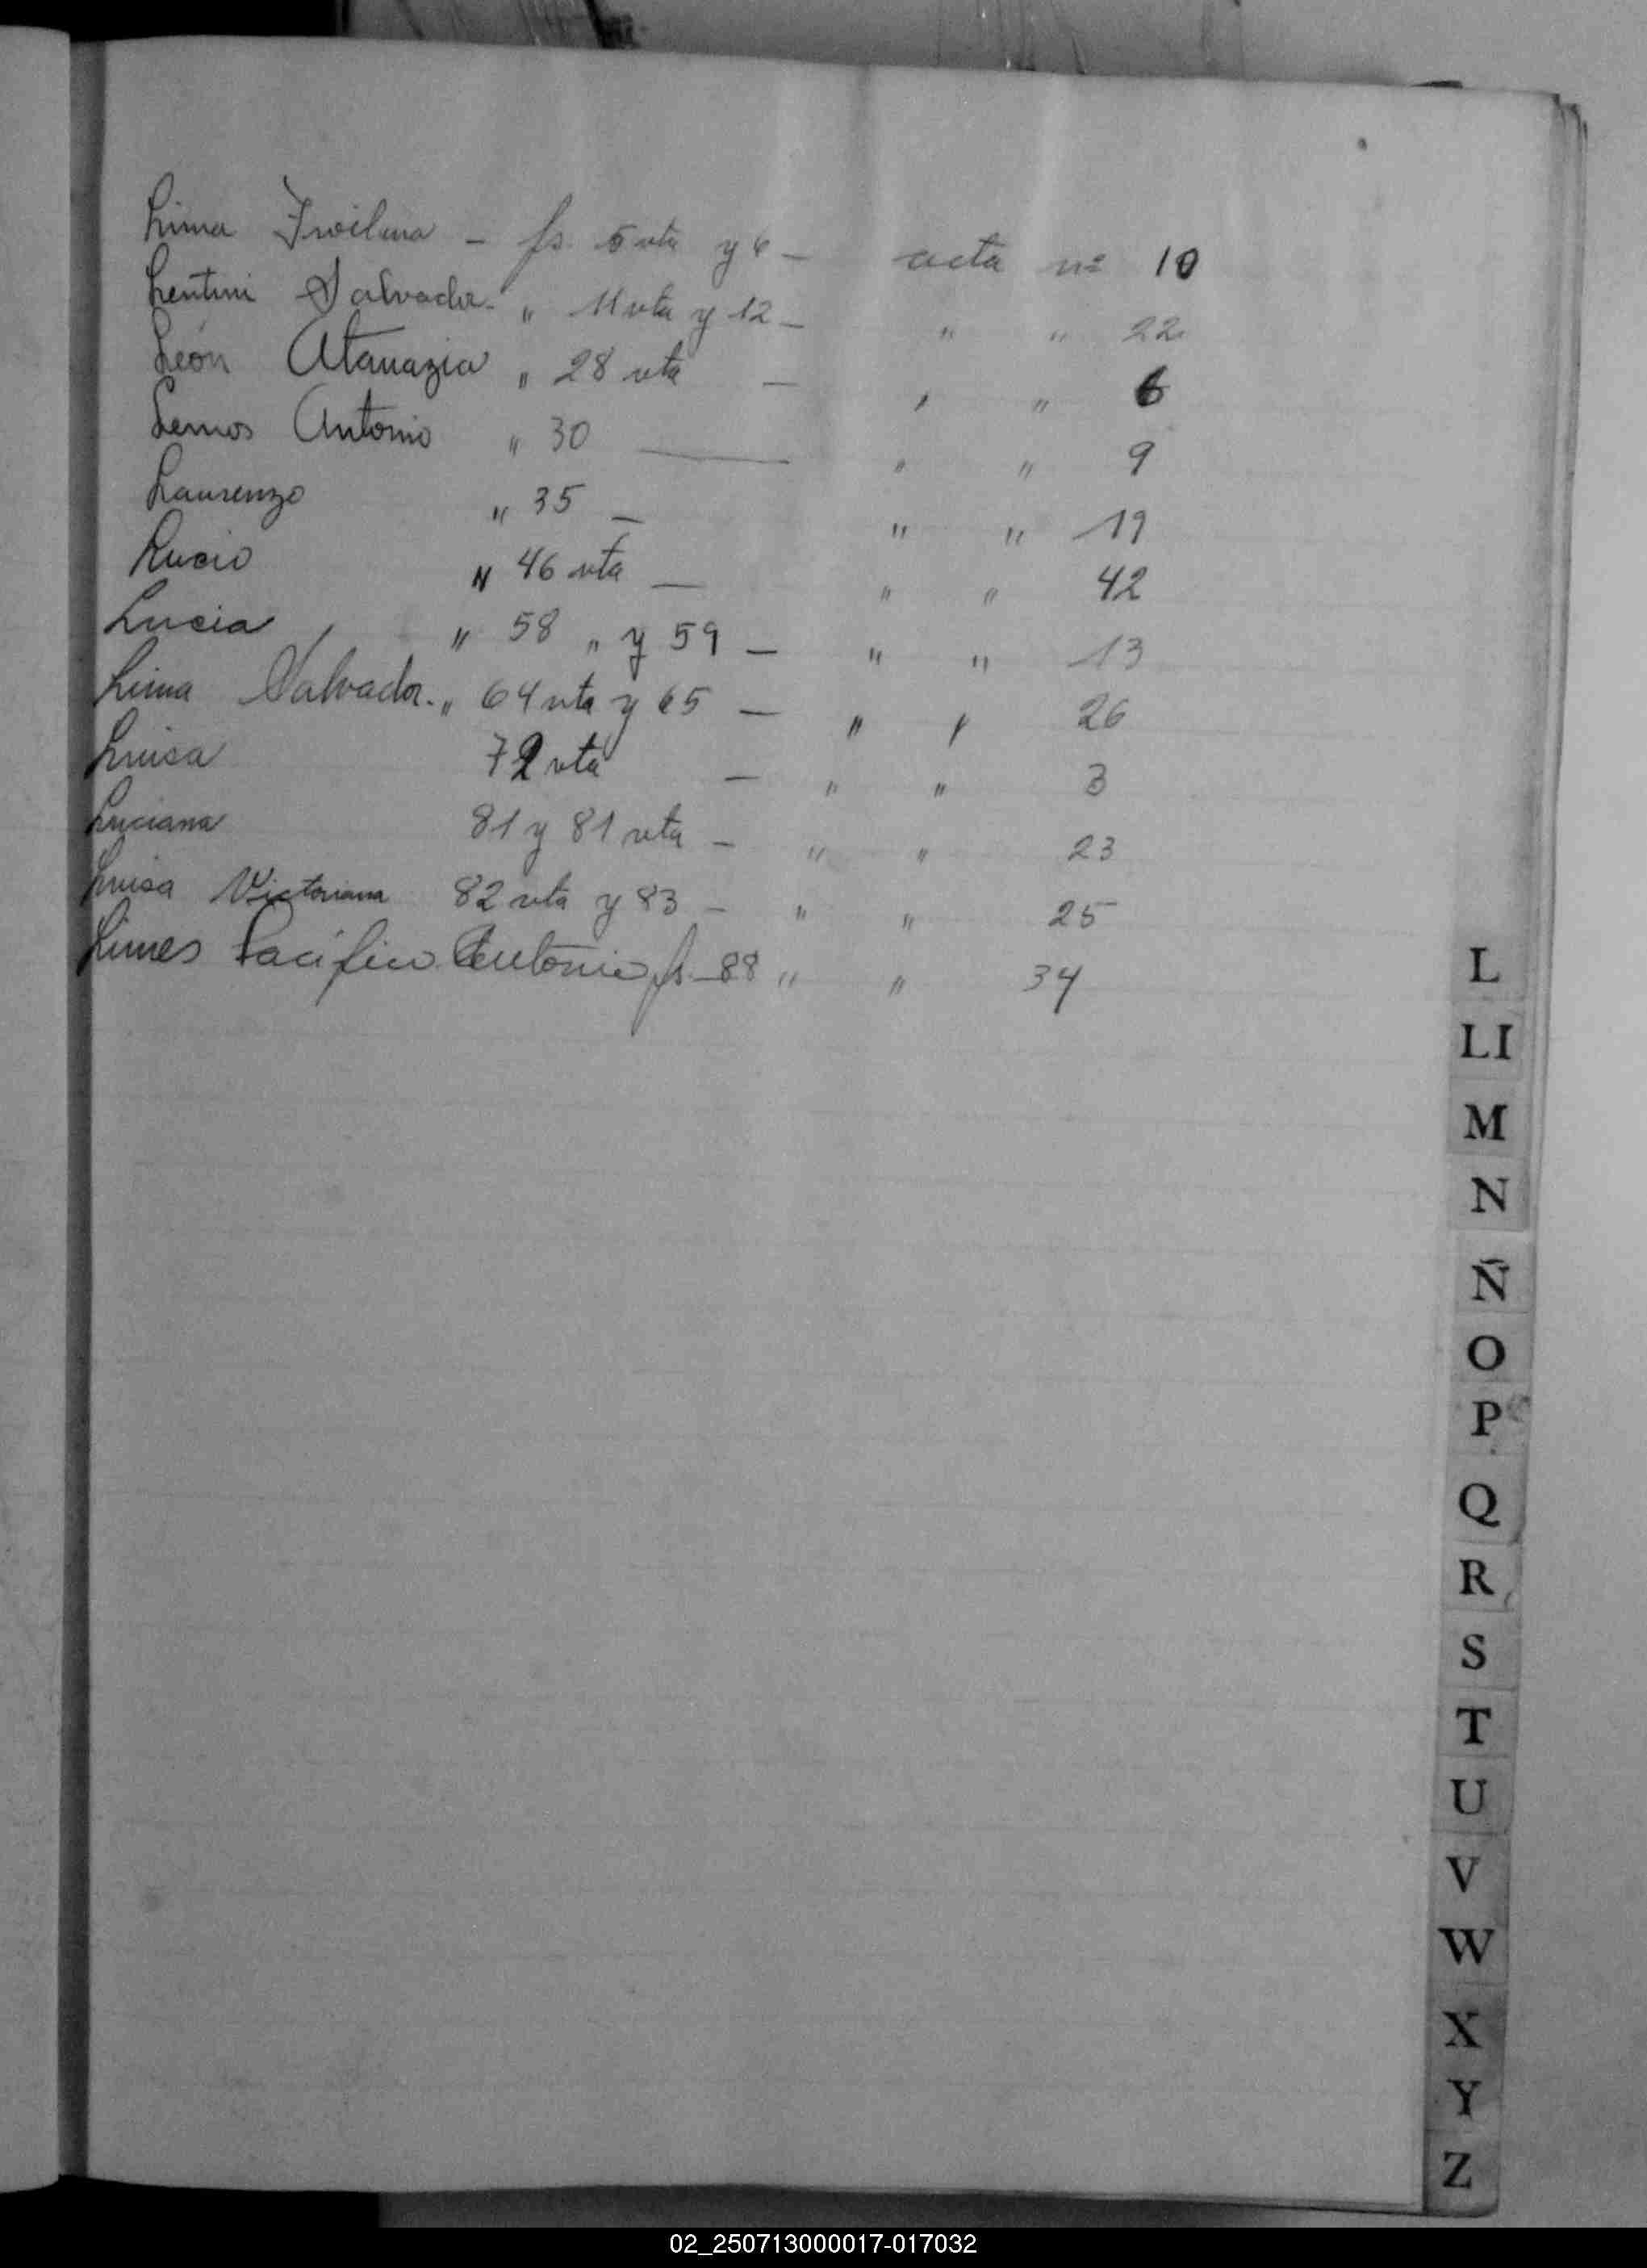 Lima Froilana - fs. 5 vta y 6 - acta nº 10
Lentini Salvador - " 11 vta y 12 - " " 22
León Atanazia " 28 vta - " " 6
Lemos Antonio " 30 — " " 9
Laurenzo " 35 - " " 19
Lucio " 46 vta - " " 42
Lucia " 58 " y 59 - " " 13
Lima Salvador - " 64 vta y 65 - " " 26
Luisa 72 vta - " " 3
Luciana 81 y 81 vta - " " 23
Luisa Victoriana 82 vta y 83 - " " 25
Limes Pacífico Antonio fs - 88 " " 34
L
LI
M
N
Ñ
O
P
Q
R
S
T
U
V
W
X
Y
Z
02_250713000017-017032